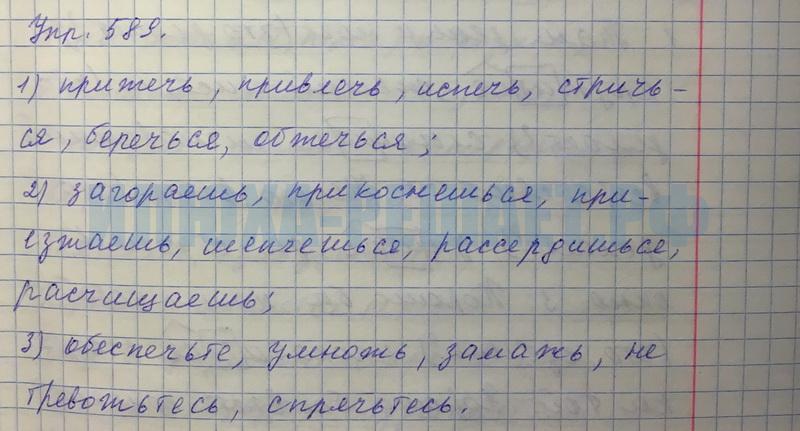 Упр. 589.
1) прижечь, привлечь, испечь, стричь-
ся, беречься, обжечься;
2) загораешь, прикоснешься, при-
езжаешь, шепчешься, рассердишься,
расчищаешь;
3) обеспечьте, умножь, замажь, не
тревожьтесь, спрячьтесь.